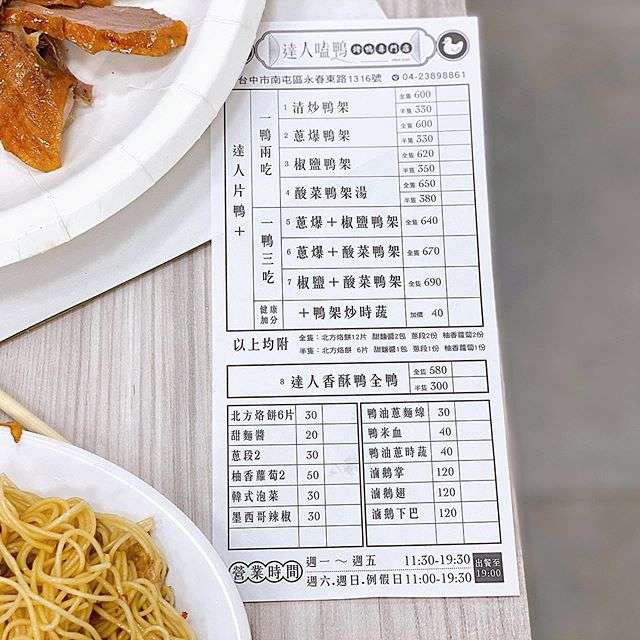 達人嗑鴨 烤鴨專門店
台中市南屯區永春東路1316號 04-23898861
達人片鴨+
一鴨兩吃
1 清炒鴨架 全隻 600 半隻 330
2 蔥爆鴨架 全隻 600 半隻 330
3 椒鹽鴨架 全隻 620 半隻 350
4 酸菜鴨架湯 全隻 650 半隻 380
一鴨三吃
5 蔥爆+椒鹽鴨架 全隻 640
6 蔥爆+酸菜鴨架 全隻 670
7 椒鹽+酸菜鴨架 全隻 690
健康加分 +鴨架炒時蔬 加價 40
以上均附
全隻：北方烙餅12片 甜麵醬2包 蔥段2份 柚香蘿蔔2份
半隻：北方烙餅 6片 甜麵醬1包 蔥段1份 柚香蘿蔔1份
8 達人香酥鴨全鴨 全隻 580 半隻 300
北方烙餅6片 30
甜麵醬 20
蔥段2 30
柚香蘿蔔2 50
韓式泡菜 30
墨西哥辣椒 30
鴨油蔥麵線 30
鴨米血 40
鴨油蔥時蔬 40
滷鵝掌 120
滷鵝翅 120
滷鵝下巴 120
營業時間
週一～週五 11:30-19:30
週六.週日.例假日 11:00-19:30
出餐至 19:00